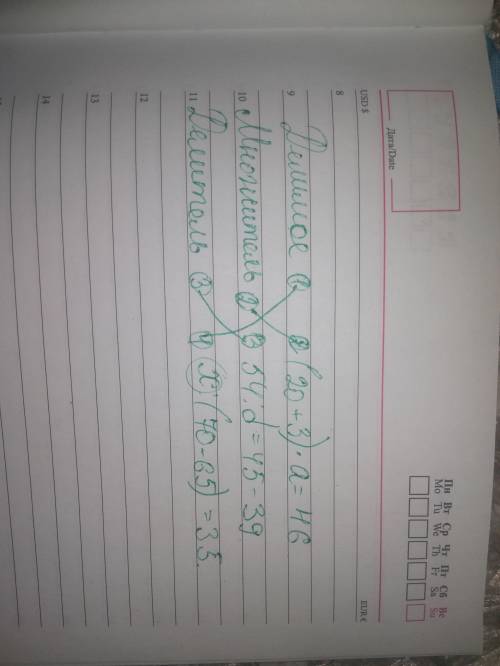 Дата/Date
Пн Вт Ср Чт Пт Сб Вс
Mo Tu We Th Fr Sa Su
USD $ EUR €
8
9 Делимое 1 2 (20+3)·a=46
10 Множитель 2 3 54:d=45-39
11 Делитель 3 1 x:(70-65)=35.
12
13
14